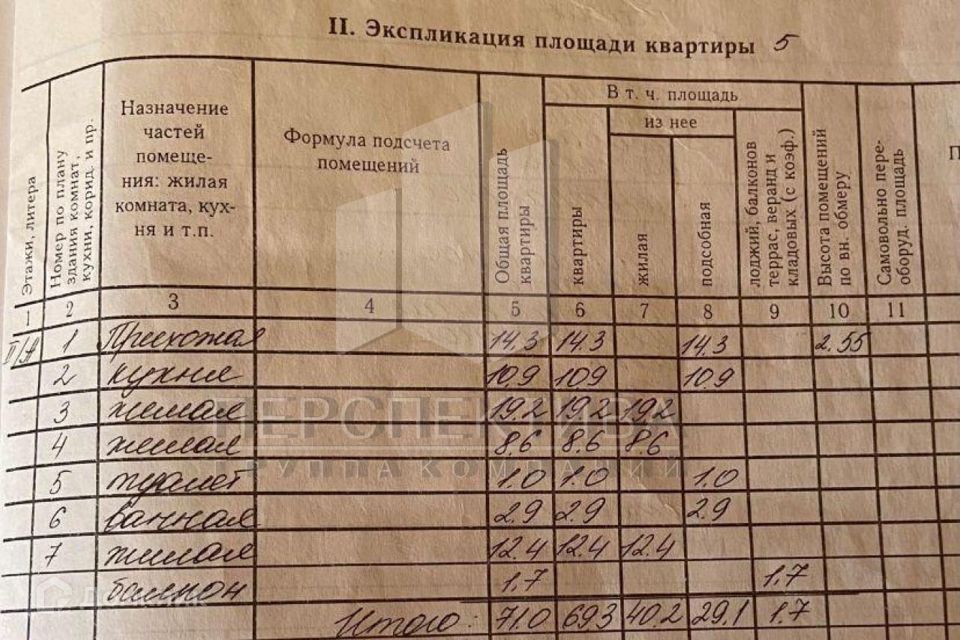 II. Экспликация площади квартиры 5
Этажи, литера
Номер по плану здания комнат, кухни, корид. и пр.
Назначение
частей
помеще-
ния: жилая
комната, кух-
ня и т.п.
Формула подсчета
помещений
Общая площадь
квартиры
В т. ч. площадь
квартиры
из нее
жилая
подсобная
лоджий, балконов
террас, веранд и
кладовых (с коэф.)
Высота помещений
по вн. обмеру
Самовольно пере-
оборуд. площадь
П
1 2 3 4 5 6 7 8 9 10 11
II/А 1 Прихожая 14.3 14.3 14.3 2.55
2 кухня 10.9 10.9 10.9
3 жилая 19.2 19.2 19.2
4 жилая 8.6 8.6 8.6
5 туалет 1.0 1.0 1.0
6 ванная 2.9 2.9 2.9
7 жилая 12.4 12.4 12.4
балкон 1.7 1.7
Итого: 71.0 69.3 40.2 29.1 1.7
ПЕРСПЕКТИВА
ГРУППА КОМПАНИЙ